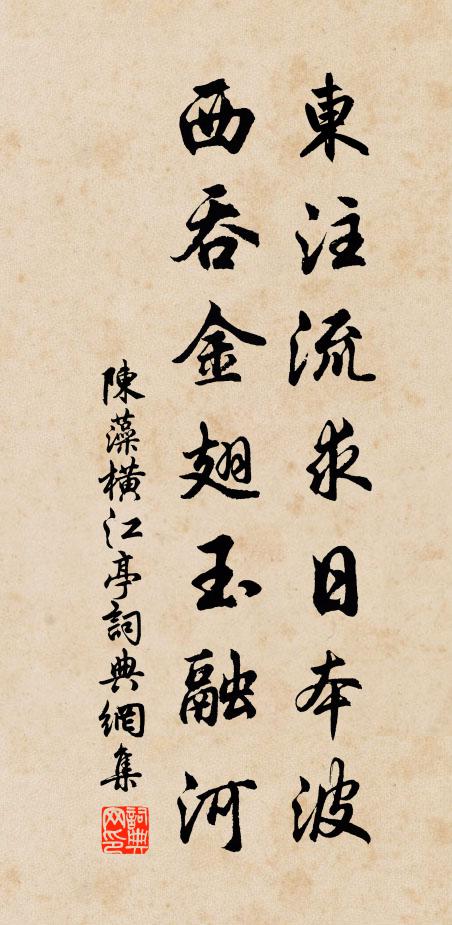 東注流求日本波
西吞金翅玉融河
陳藻橫江亭詞典網集
詞典網印